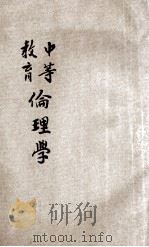 中等
教育
倫理學
mtoou.info